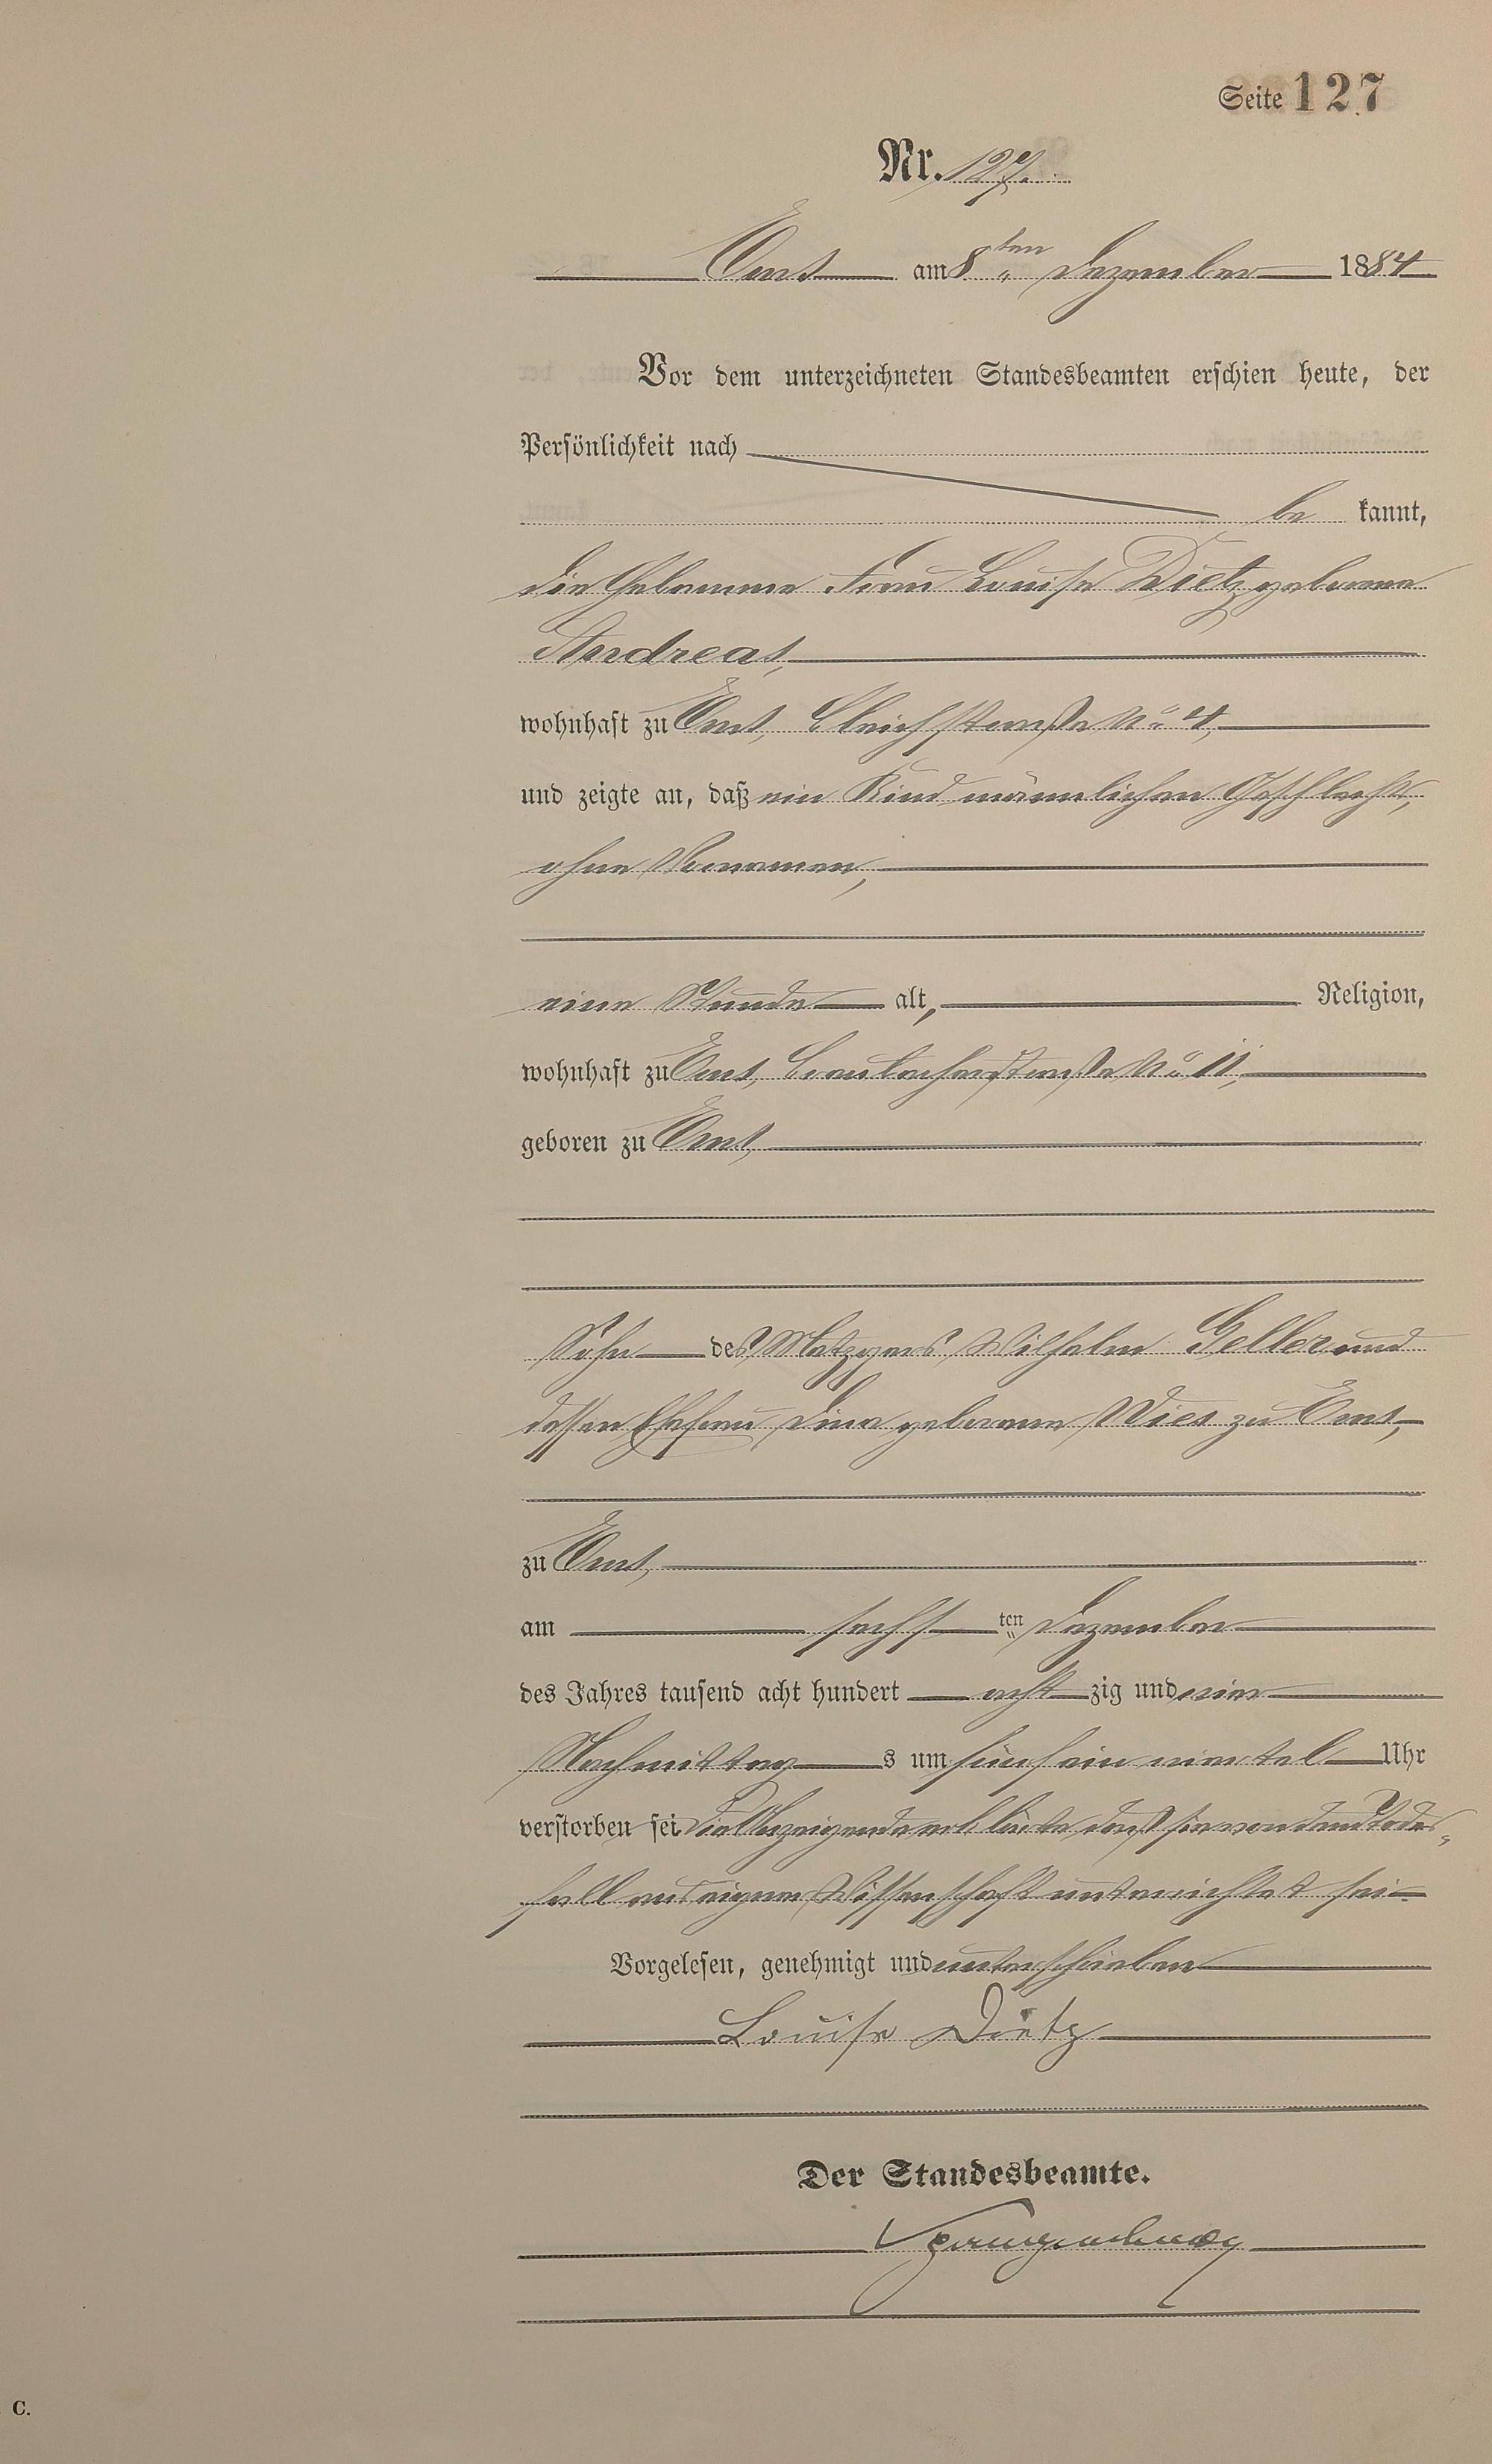 Seite 127
Nr. 127.
Ems am 8ten Dezember 1884
Vor dem unterzeichneten Standesbeamten erschien heute, der
Persönlichkeit nach
be kannt,
die Hebamme Frau Louise Dietz geborene
Andreas,
wohnhaft zu Ems, Bleichstraße No 4,
und zeigte an, daß ein Kind männlichen Geschlechts,
ohne Vornamen,
eine Stunde alt, Religion,
wohnhaft zu Ems, Braubacherstraße No 11,
geboren zu Ems,
Sohn des Metzgers Wilhelm Geller und
dessen Ehefrau, Lina geborene Wies zu Ems,
zu Ems,
am sechsten Dezember
des Jahres tausend acht hundert acht zig und vier
Nachmittags um fünf ein viertel Uhr
verstorben sei. Die Anzeigende erklärte daß sie von dem Todes-
fall aus eigener Wissenschaft unterrichtet sei.
Vorgelesen, genehmigt und unterschrieben
Louise Dietz
Der Standesbeamte.
C.